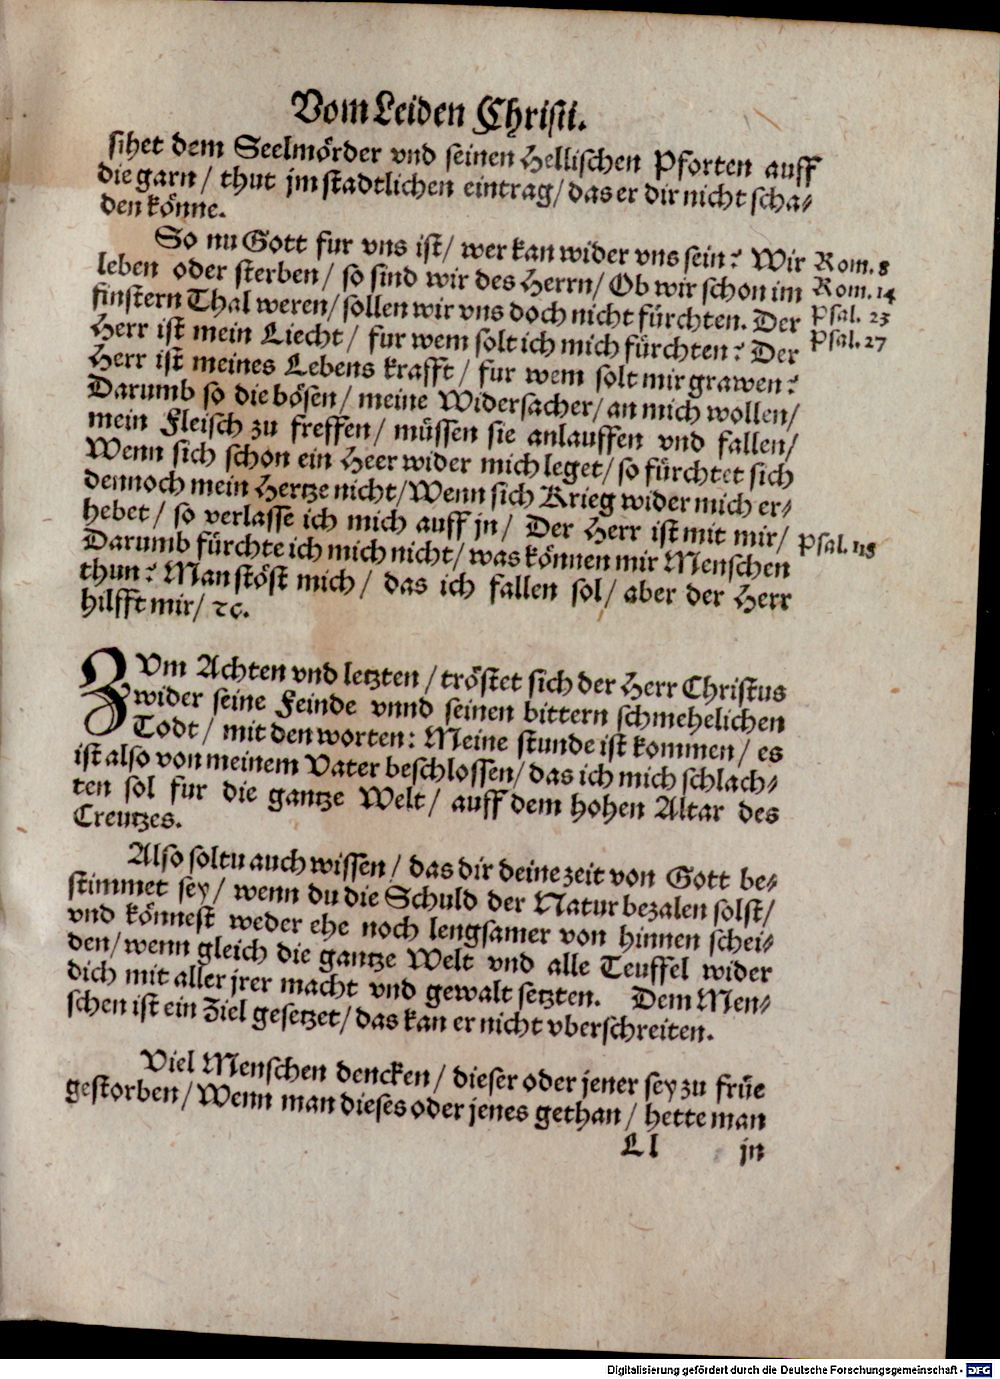 Vom Leiden Christi.
sihet dem Seelmörder vnd seinen Hellischen Pforten auff
die garn / thut jm stadtlichen eintrag / das er dir nicht scha-
den könne.
So nu Gott fur vns ist / wer kan wider vns sein? Wir Rom. 8
leben oder sterben / so sind wir des Herrn / Ob wir schon im Rom. 14
finstern Thal weren / sollen wir vns doch nicht fürchten. Der Psal. 23
Herr ist mein Liecht / fur wem solt ich mich fürchten? Der Psal. 27
Herr ist meines Lebens krafft / fur wem solt mir grawen?
Darumb so die bösen / meine Widersacher / an mich wollen /
mein Fleisch zu fressen / müssen sie anlauffen vnd fallen /
Wenn sich schon ein Heer wider mich leget / so fürchtet sich
dennoch mein Hertze nicht / Wenn sich Krieg wider mich er-
hebet / so verlasse ich mich auff jn / Der Herr ist mit mir / Psal. 118
Darumb fürchte ich mich nicht / was können mir Menschen
thun? Man stöst mich / das ich fallen sol / aber der Herr
hilfft mir / ꝛc.
ZVm Achten vnd letzten / tröstet sich der Herr Christus
wider seine Feinde vnnd seinen bittern schmehelichen
Todt / mit den worten: Meine stunde ist kommen / es
ist also von meinem Vater beschlossen / das ich mich schlach-
ten sol fur die gantze Welt / auff dem hohen Altar des
Creutzes.
Also soltu auch wissen / das dir deine zeit von Gott be-
stimmet sey / wenn du die Schuld der Natur bezalen solst /
vnd könnest weder ehe noch lengsamer von hinnen schei-
den / wenn gleich die gantze Welt vnd alle Teuffel wider
dich mit aller jrer macht vnd gewalt setzten. Dem Men-
schen ist ein Ziel gesetzet / das kan er nicht vberschreiten.
Viel Menschen dencken / dieser oder jener sey zu früe
gestorben / Wenn man dieses oder jenes gethan / hette man
Ll jn
Digitalisierung gefördert durch die Deutsche Forschungsgemeinschaft - DFG